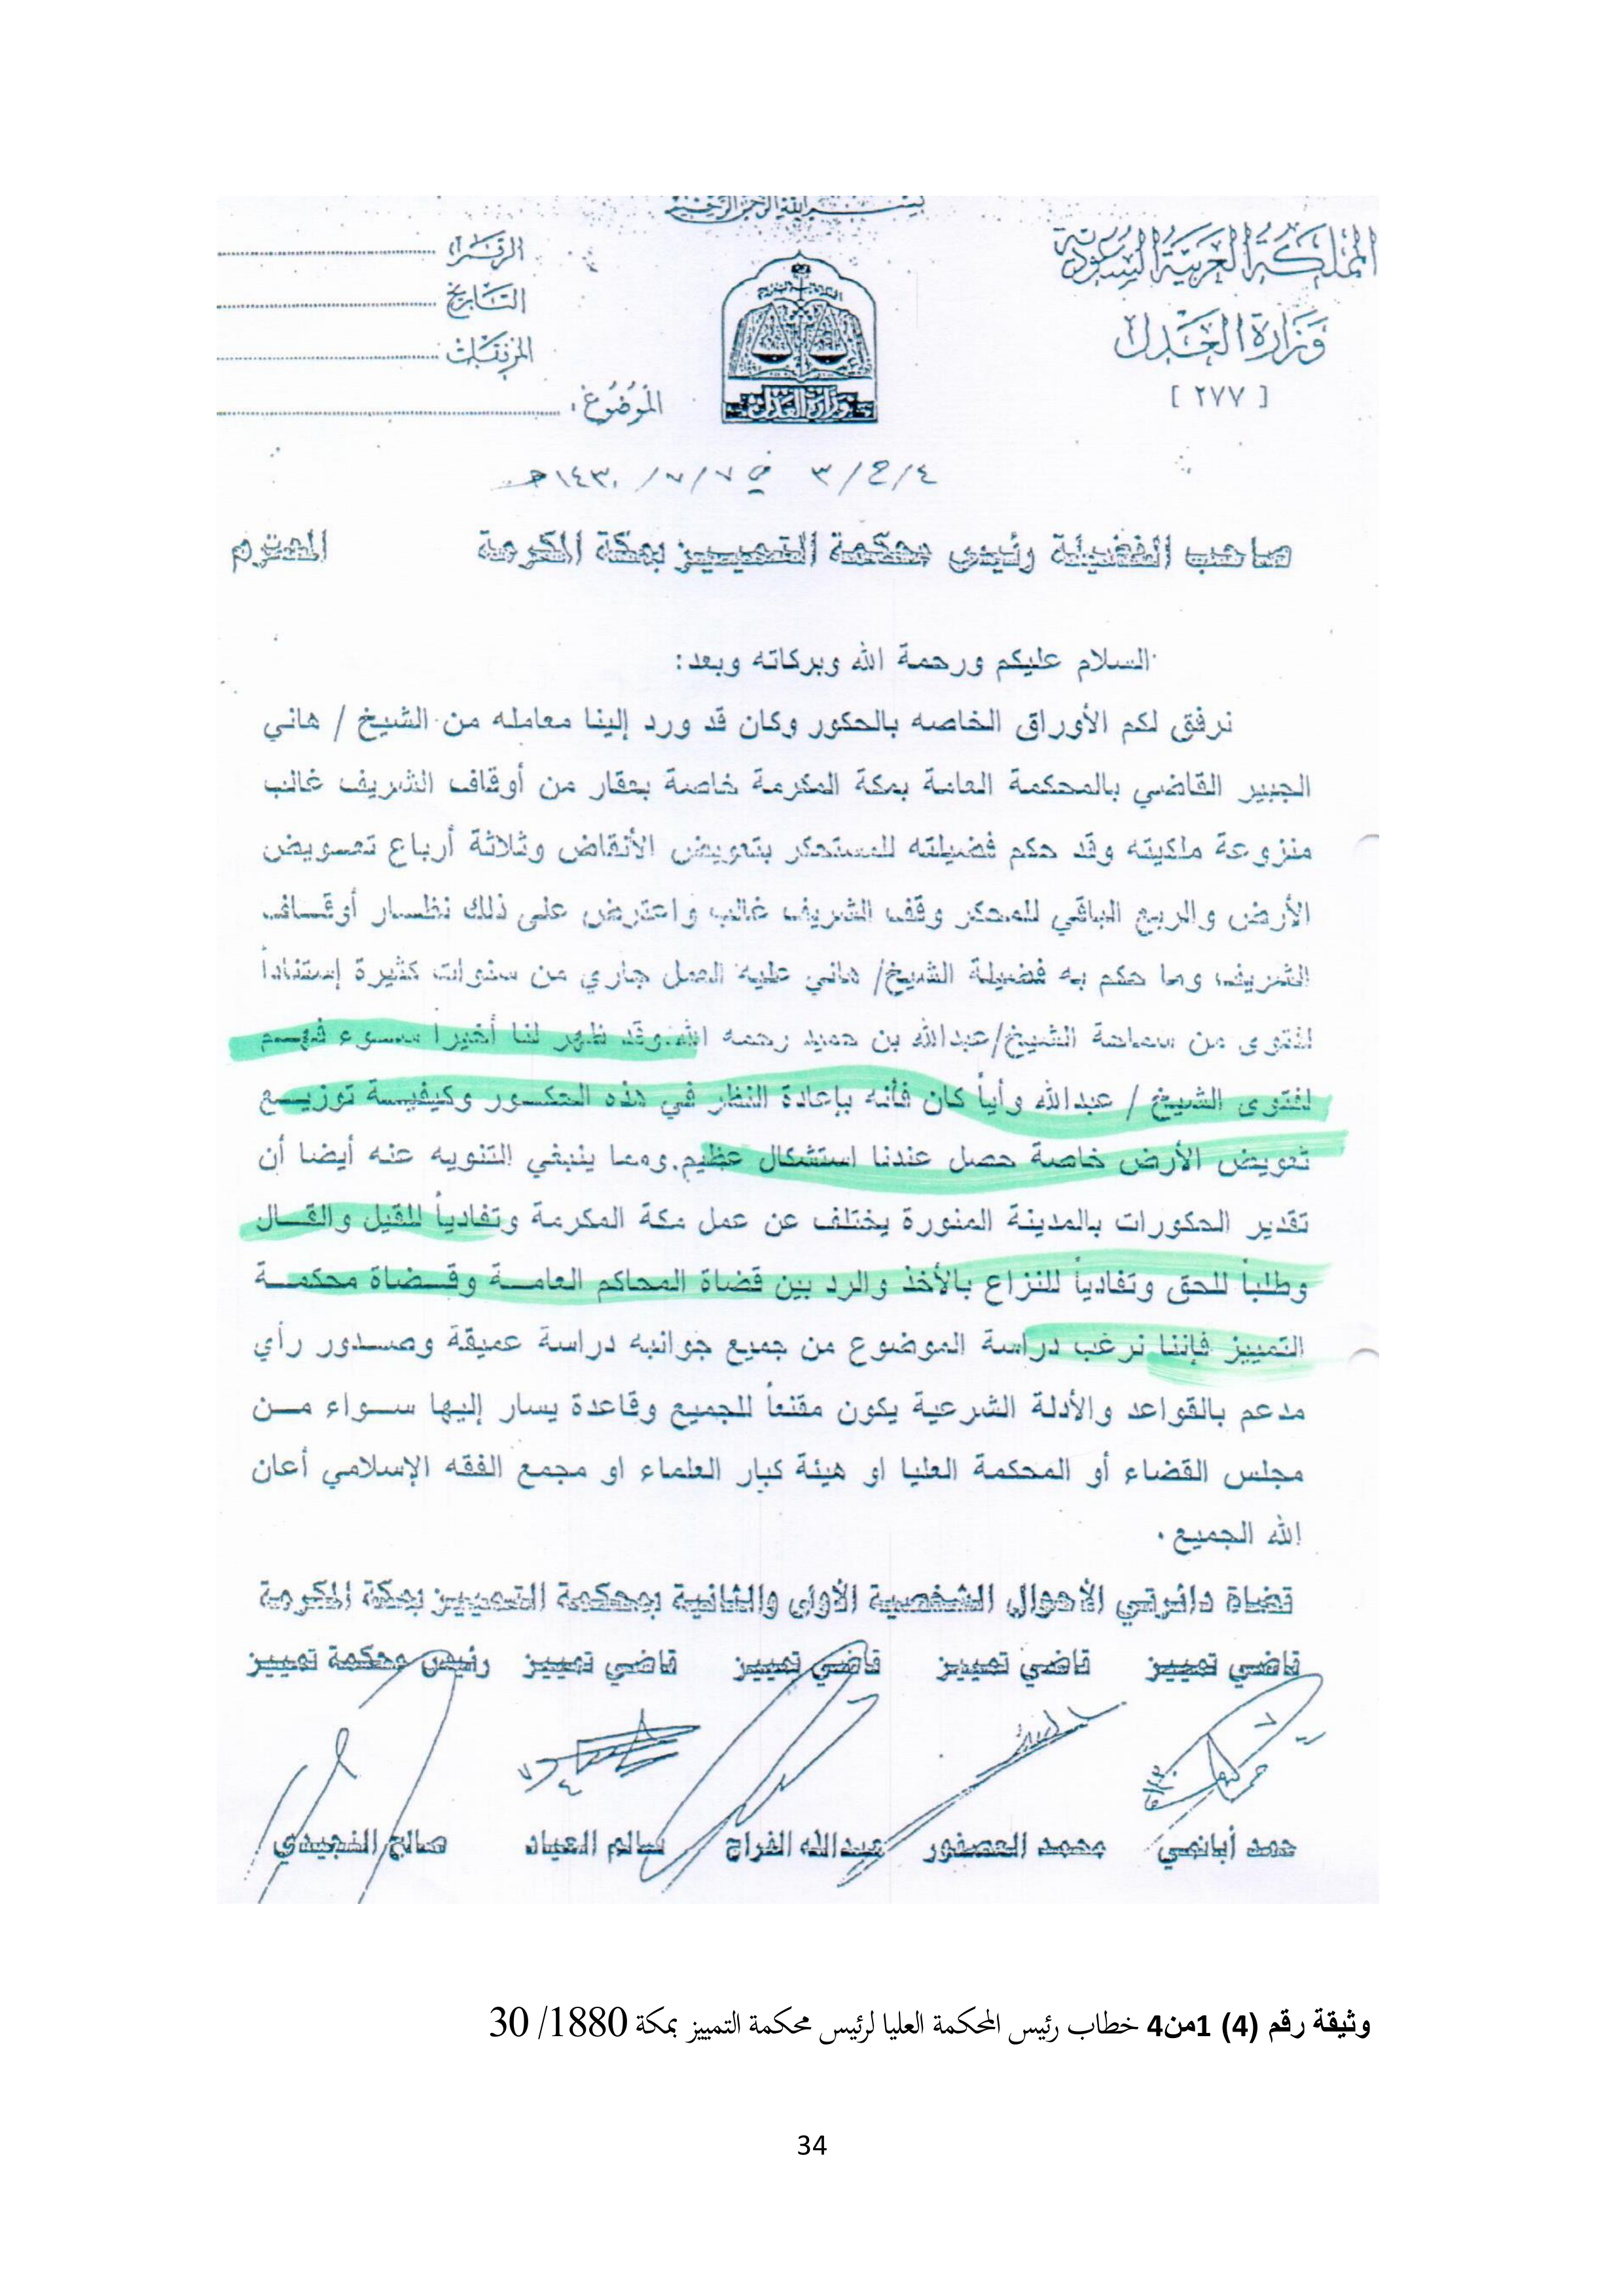 بسم الله الرحمن الرحيم
المملكة العربية السعودية
وزارة العدل
[ ٢٧٧ ]
الرقم
التاريخ
المرفقات
الموضوع
وزارة العدل
٤/ح/٣ في ٧/٧/١٤٣٠هـ
صاحب الفضيلة رئيس محكمة التمييز بمكة المكرمة المحترم
السلام عليكم ورحمة الله وبركاته وبعد:
نرفق لكم الأوراق الخاصه بالحكور وكان قد ورد إلينا معامله من الشيخ / هاني
الجبير القاضي بالمحكمة العامة بمكة المكرمة خاصة بعقار من أوقاف الشريف غالب
منزوعة ملكيته وقد حكم فضيلته للمستحكر بتعويض الأنقاض وثلاثة أرباع تعويض
الأرض والربع الباقي للمحكر وقف الشريف غالب واعترض على ذلك نظار أوقاف
الشريف وما حكم به فضيلة الشيخ/ هاني عليه العمل جاري من سنوات كثيرة إستناداً
لفتوى من سماحة الشيخ/عبدالله بن حميد رحمه الله.وقد ظهر لنا أخيرا سوء فهم
لفتوى الشيخ / عبدالله وأياً كان فأنه بإعادة النظر في هذه الحكور وكيفية توزيع
تعويض الأرض خاصة حصل عندنا استشكال عظيم.ومما ينبغي التنويه عنه أيضا أن
تقدير الحكورات بالمدينة المنورة يختلف عن عمل مكة المكرمة وتفادياً للقيل والقال
وطلباً للحق وتفادياً للنزاع بالأخذ والرد بين قضاة المحاكم العامة وقضاة محكمة
التمييز فإننا نرغب دراسة الموضوع من جميع جوانبه دراسة عميقة وصدور رأي
مدعم بالقواعد والأدلة الشرعية يكون مقنعاً للجميع وقاعدة يسار إليها سواء من
مجلس القضاء أو المحكمة العليا او هيئة كبار العلماء او مجمع الفقه الإسلامي أعان
الله الجميع .
قضاة دائرتي الأحوال الشخصية الأولى والثانية بمحكمة التمييز بمكة المكرمة
قاضي تمييز قاضي تمييز قاضي تمييز قاضي تمييز رئيس محكمة تمييز
حمد أبانمي محمد العصفور عبدالله الفراج سالم العياد صالح النجيدي
وثيقة رقم (4) 1من4 خطاب رئيس المحكمة العليا لرئيس محكمة التمييز بمكة 1880/ 30
34